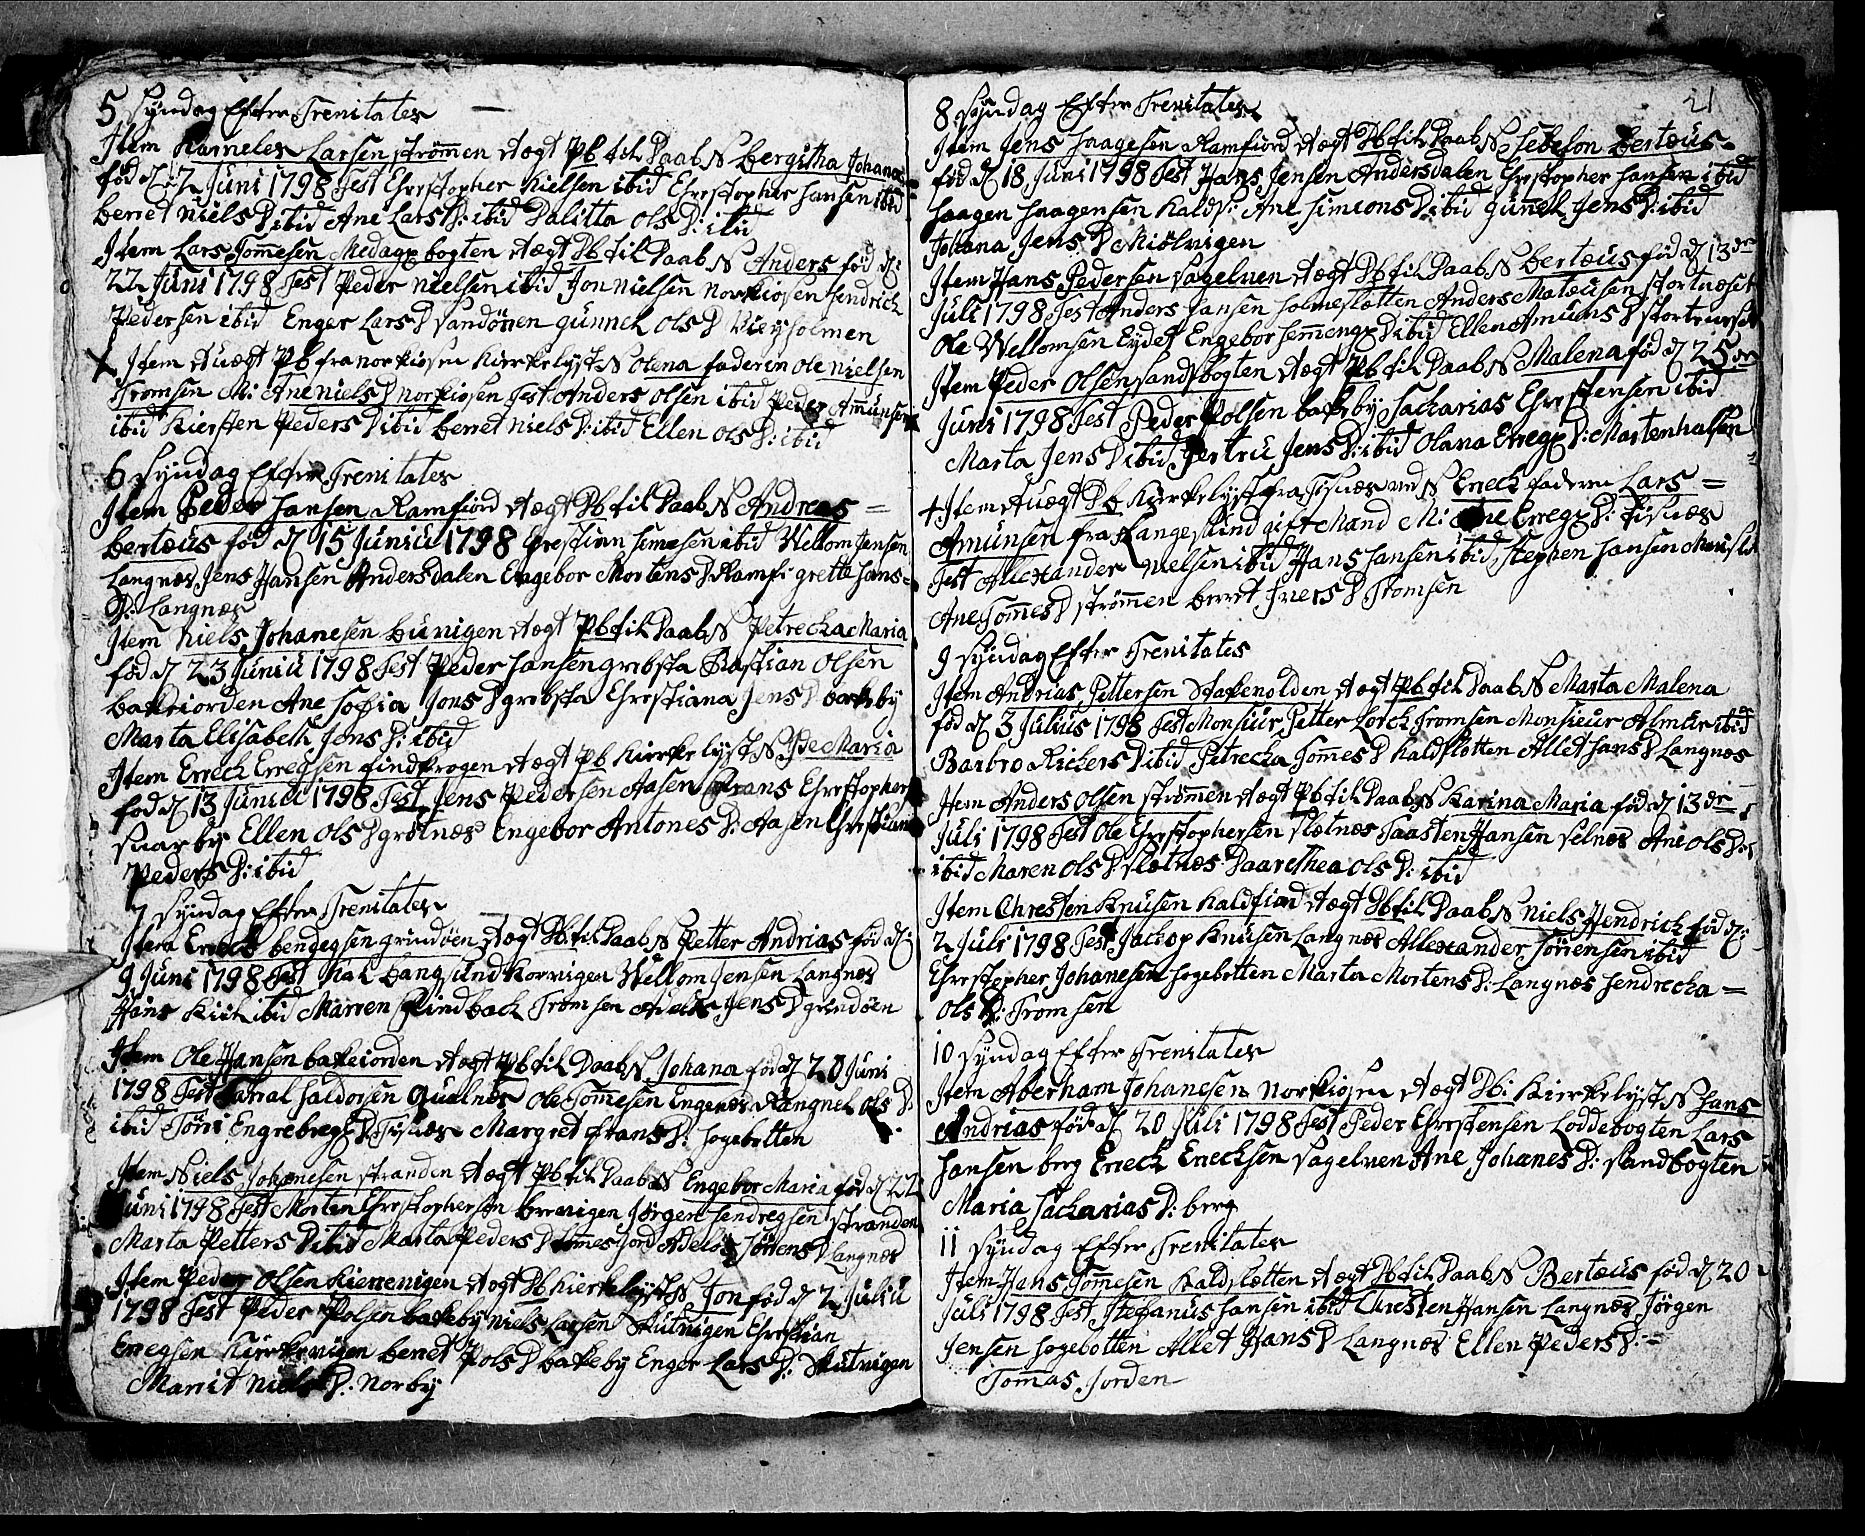 5 Syndag Efter Trenitates
Item Karneles Larsen strømen Aegt Pb til Daab N Bergitha Johana
fød d 12 Juni 1798 Test Chrestopher Nielsen ibid Chrestopher Hansen ibid
berret Niels D ibid Ane Lars D: ibid Dalitta Ols D: ibid
Item Lars Tomesen Medagsbogten Aegt Pb til Daab N Anders fød d:
22 Juni 1798 Test Peder Nielsen ibid Jon Nielsen Norkiosen Hendrich
Pedersen ibid Enger Lars D Sandøren Gunnel Ols D
X Item Auægt Pb fra Norkiosen Kierkelyst N Olena faderen Ole Nielsen
Tromsen M: Ane Niels D Norkiosen Test Anders Olsen ibid Peder Amunsen
ibid Kiersten Peders D ibid berret Niels D: ibid Ellen Ols D: ibid
6 Syndag Efter Trenitates
Item Peder Hansen Ramfiord Aegt Pb til Daab N Andreas =
Bertæus fød d 15 Juniu 1798 Chrestian Simesen ibid Wellom Jensen
Langnæs Jens Hansen Andersdalen Engebor Mortens D Ramfi grette Hans=
D: Langnæs
Item Niels Johanesen Bunigen Aegt Pb til Daab N Petrecka Maria
fød d 23 Juniu 1798 Test Peder Hansen grebsta Bastian Olsen
bakeiorden Ane Sofia Jons D grebsta Chrestiana Jens D bakeby
Marta Elisabeth Jens D: ibid
Item Erreck Erregsen findkrogen Aegt Pb Kierkelyst N Maria
fød d 13 Juniu 1798 Test Jens Pedersen Aasen Frans Chrestophers
Suarby Ellen Ols D grotnæs Engebor Antones D: Aasen Chrestiana
Peders D: ibid
7 Syndag Efter Trenitates
Item Erreck bendegsen grindøen Aegt Pb til Daab N Petter Andrias fød d:
9 Juni 1798 Test Kal Bangsund Korvigen Wellom Jensen Langnæs
Hans Kiil ibid Marren Lindback Tromsen Jens D grindøen
Item Ole Hansen bakeiorden Aegt Pb til Daab N Johana fød d 20 Juni
1798 Test Haldorsen Qualnes Ole Tomesen Engenæs Rangnel Ols D:
ibid Töri Engrebregs D Tisnæs Margret frans D: Hogebotten
Item Niels Johanesen stranden Aegt Pb til Daab N Engebor Maria fød d 22
Juni 1798 Test Morten Chrestophersen brevigen Jörgen Hendregsen stranden
Marta Petters D ibid Marta Peders D Tomesjord Adelos Jörrens D Langnæs
Item Peder Olsen Kierrevigen Aegt Pb Kierkelyst N Jon fød d 2 Juliu
1798 Test Peder Polsen bakeby Niels Larsen Skutvigen Chrestian
Erregsen Kierkevigen berret Pols D bakeby Enger Lars D: Skutvigen
Marrit Niels D: Norby
21
8 Syndag Efter Trenitates
Item Jens Haagesen Ramfiord Aegt Pb til Daab N Sebelon Bertæus-
fød d 18 Juni 1798 Test Hans Jensen Andersdalen Chrestopher Hansen ibid
Haagen Haagensen Kalds: Ane Simeons D: ibid Gunnel Jens D: ibid
Johana Jens D Miölvigen
Item Hans Pedersen Sagelven Aegt Pb til Daab N Bertæus fød d 13de
Juli 1798 Test Anders Hansen Holmesletten Anders Matæusen Stortnæset
Ole Wellomsen Eydet Engebor Hemmengs D: ibid Ellen Amuns D
Item Peder Olsen Sandsbogten Aegt Pb til Daab N Malena fød d 25de
Juni 1798 Test Peder Polsen bakeby Sacharias Chrestensen ibid
Marta Jens D ibid Jertru Jens D: ibid Olana Erregs D: Martenhalsen
+ Item Auægt Pb Kierkelyst fra Tisnæs ved N Erreck faderen Lars =
Amunsen fra Langesund gift Mand M: Ane Erregs D: Tisnæs
Test Allexander Nielsen ibid Hans Hansen ibid Stephen Hansen
Ane Tomes D strømen berret Ivers D Tromsen
9 Syndag Efter Trenitates
Item Andrias Pettersen Stakenolden Aegt Pb til Daab N Marta Malena
fød d 3 Julius 1798 Test Monsiur Petter Lorck Tromsen Monsieur Almur ibid
Barbro Rickers D ibid Petrecka Tomes D Kaldslotten Allet Hans D Langnæs
Item Anders Olsen strømen Aegt Pb til Daab N Karina Maria fød d 13de
Juli 1798 Test Ole Chrestophersen Slætnæs Taasten Hansen Selnæs Ane Ols D:
ibid Maren Ols D Slætnæs Daarethea Ols D: ibid
Item Chresten Knusen Kaldfiord Aegt Pb til Daab N Niels Hendrich fød d:
2 Juli 1798 Test Jackop Knusen Langnæs Allexander Törrensen ibid
Chrestopher Johanesen Hogebotten Marta Mortens D: Langnæs Hendrecka =
Ols D: Tromsen
10 Syndag Efter Trenitates
Item Aberham Johanesen Norkiosen Aegt Pb: Kierkelyst N Hans
Andrias fød d 20 Juli 1798 Test Peder Chrestensen Loddebogten Lars
Hansen berg Erreck Errecksen Sagelven Ane Johanes D: Sandbogten
Maria Sacharias D: berg
11 Syndag Efter Trenitates
Item Hans Tomesen Kaldsletten Aegt Pb til Daab N Bertæus fød d 20
Juli 1798 Test Stefanus Hansen ibid Chresten Hansen Langnæs Jörgen
Jensen Hogebotten Allet Hans D Langnæs Ellen Peders D: =
Tomas Jorden